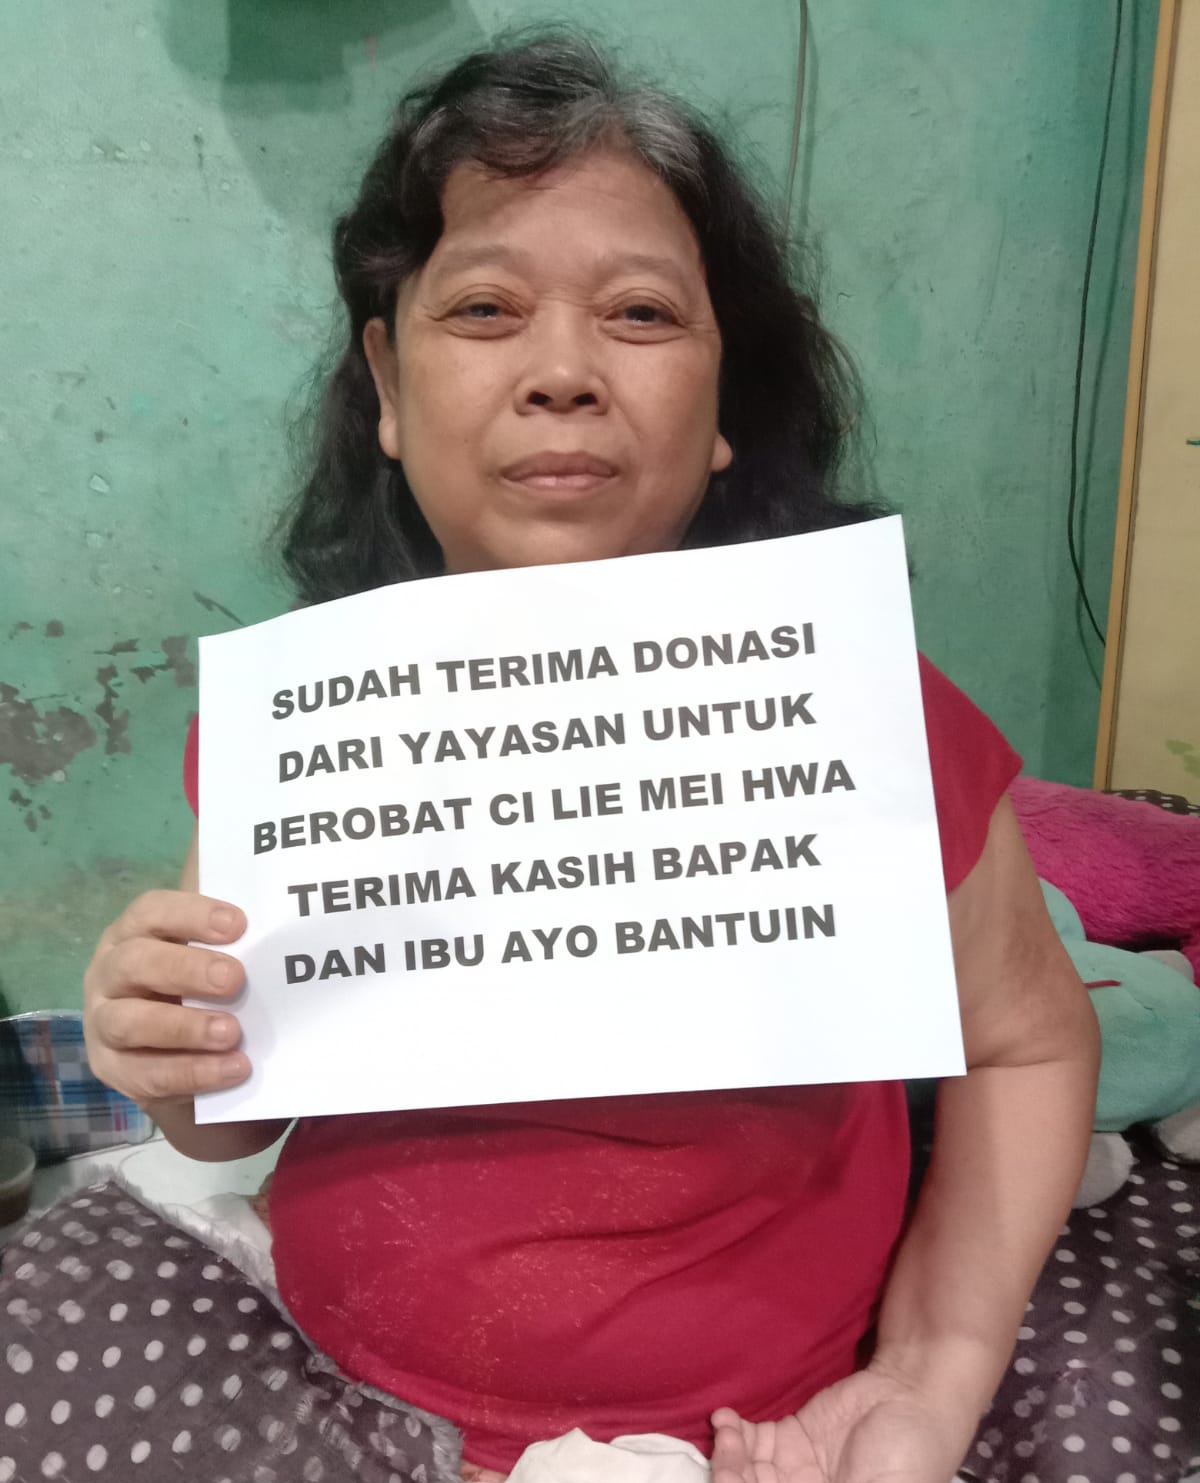 SUDAH TERIMA DONASI
DARI YAYASAN UNTUK
BEROBAT CI LIE MEI HWA
TERIMA KASIH BAPAK
DAN IBU AYO BANTUIN